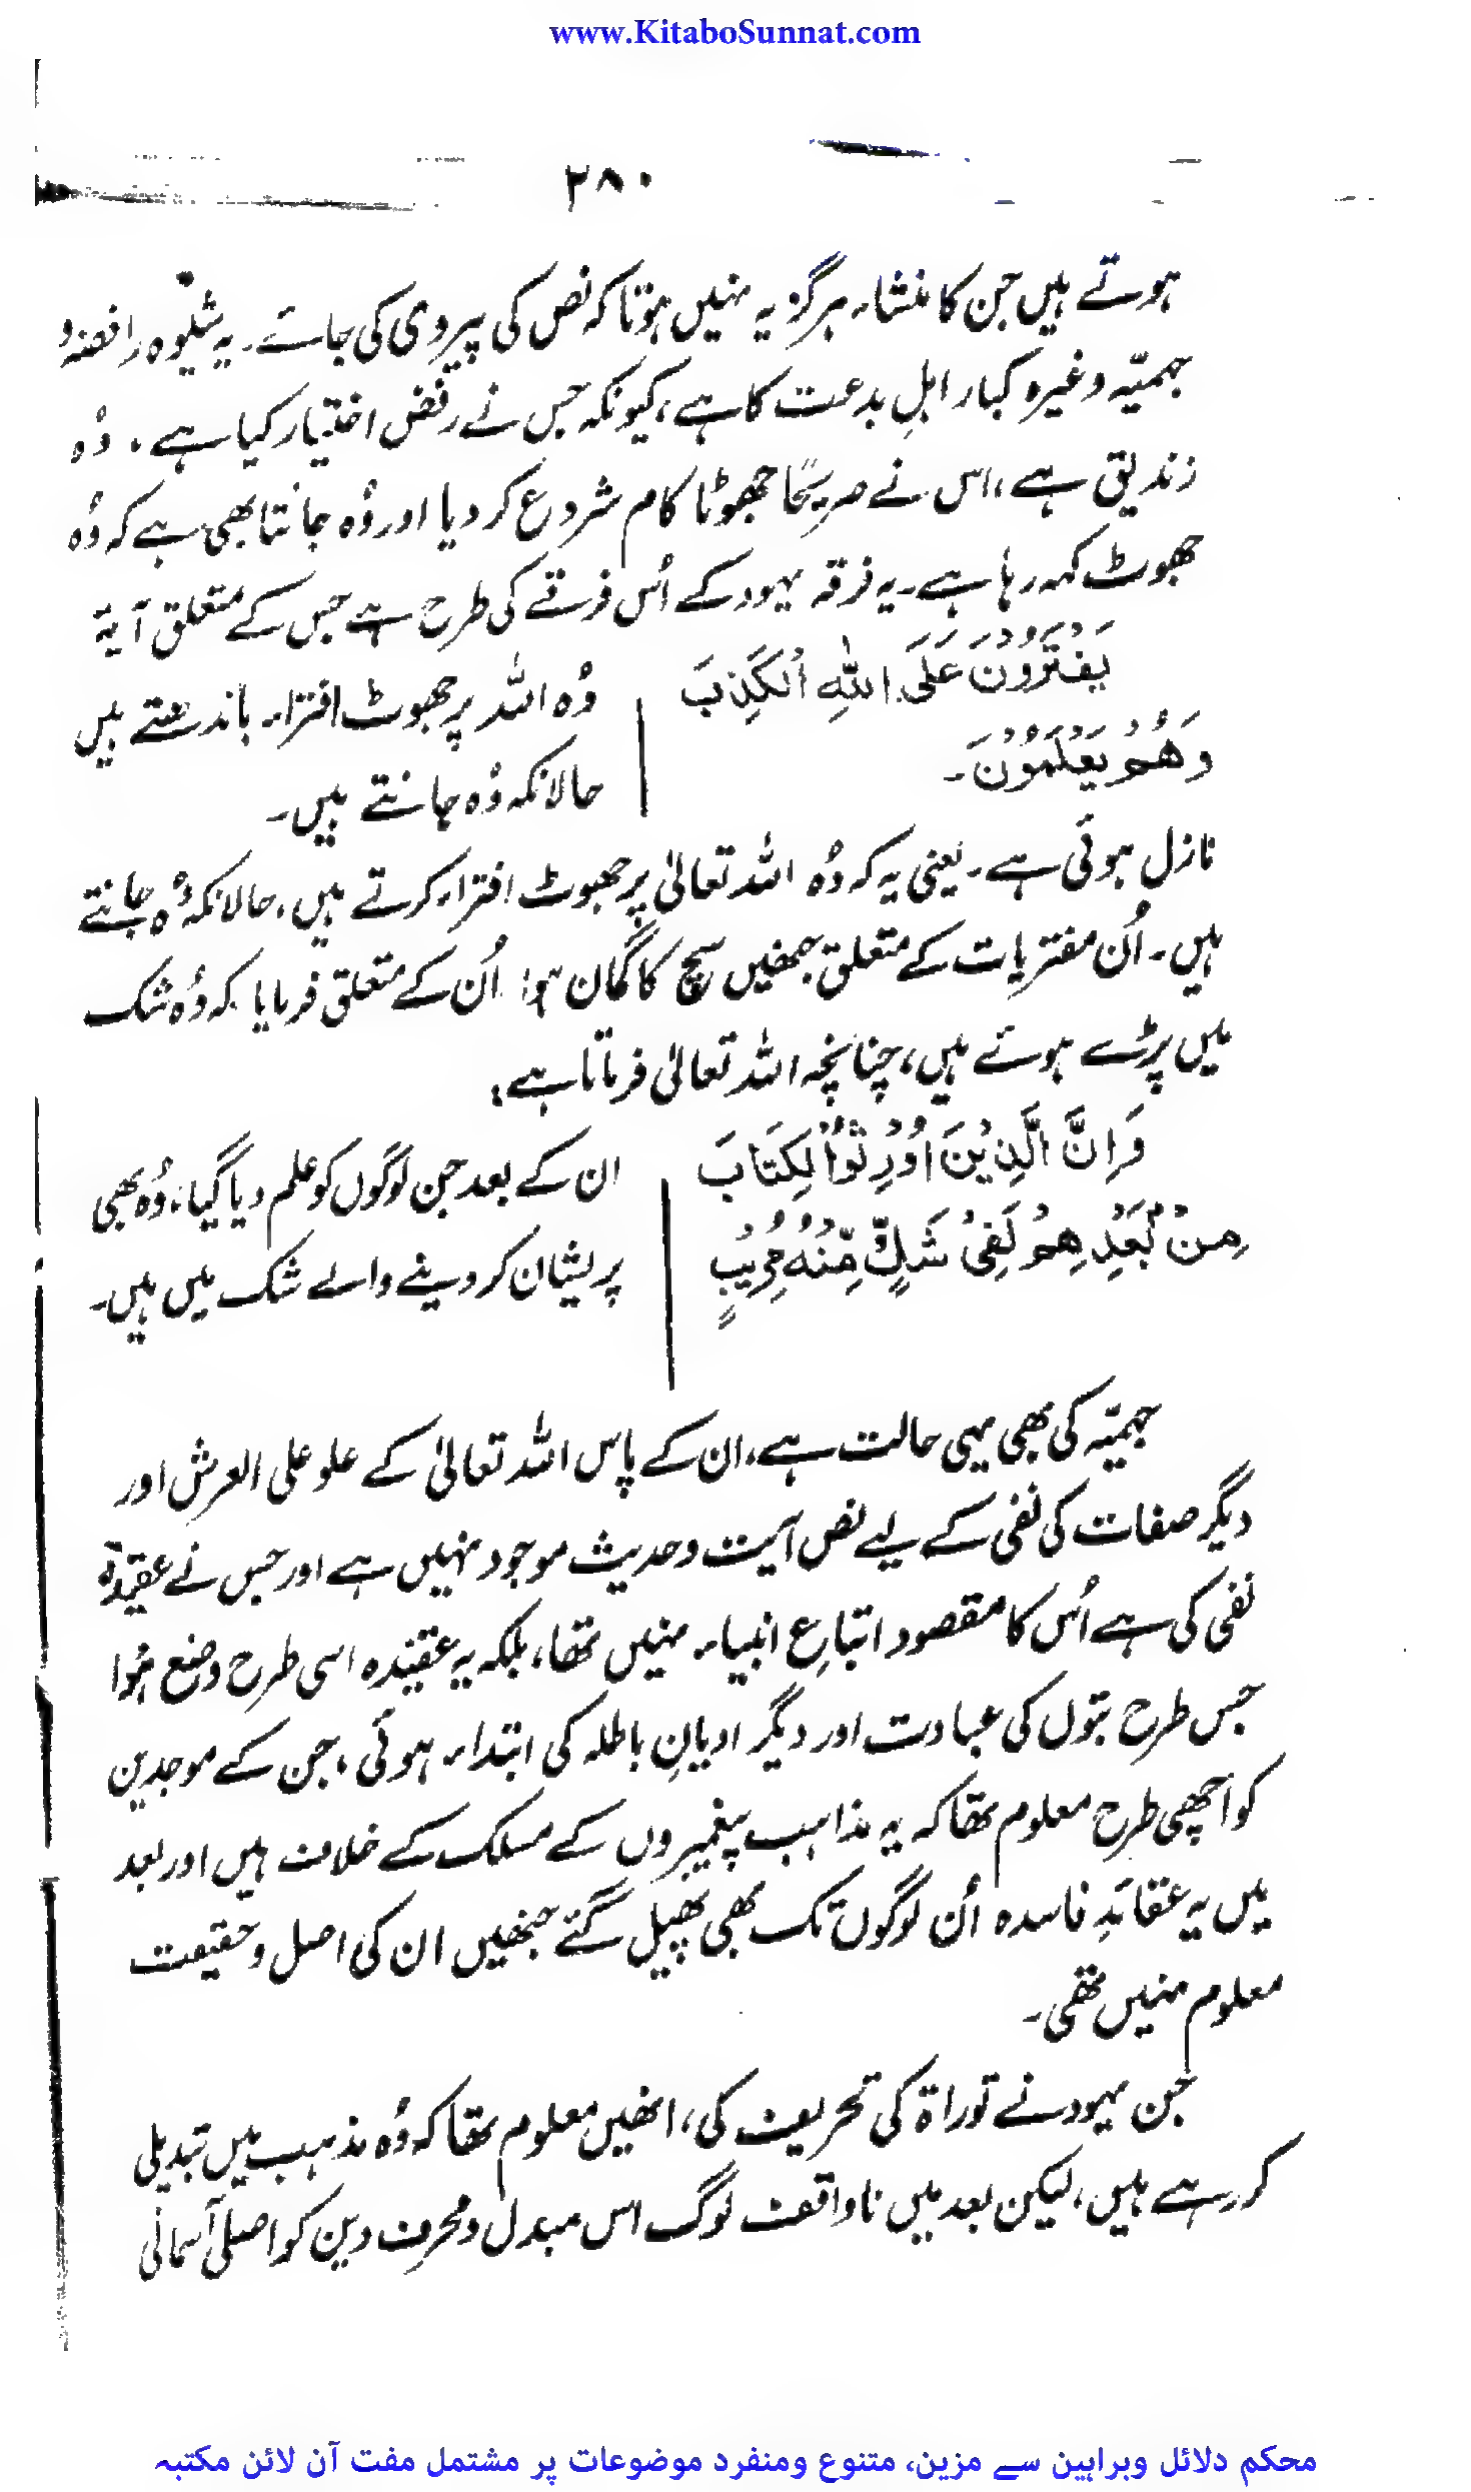 www.KitaboSunnat.com
۲۸۰
ہوتے ہیں جن کا منشاء ہرگز یہ نہیں ہوتا کہ نص کی پیروی کی جائے۔ یہ شیوہ رافضہ و
جہمیّہ وغیرہ کبار اہلِ بدعت کا ہے، کیونکہ جس نے رفض اختیار کیا ہے، وُہ
زندیق ہے، اس نے صریحًا جھوٹا کام شروع کر دیا اور وُہ جانتا بھی ہے کہ وُہ
جھوٹ کہہ رہا ہے۔ یہ فرقہ یہود کے اُس فرقے کی طرح ہے جس کے متعلق آیۃ
يَفْتَرُوْنَ عَلَى اللهِ الْكَذِبَ
وَهُمْ يَعْلَمُوْنَ۔
وُہ اللہ پر جھوٹ افتراء باندھتے ہیں
حالانکہ وُہ جانتے ہیں۔
نازل ہوئی ہے۔ یعنی یہ کہ وُہ اللہ تعالیٰ پر جھوٹ افتراء کرتے ہیں، حالانکہ وُہ جانتے
ہیں۔ اُن مفتریات کے متعلق جمفیں سچ کا گمان ہوا اُن کے متعلق فرمایا کہ وُہ شک
میں پڑے ہوئے ہیں، چنانچہ اللہ تعالیٰ فرماتا ہے:
وَاِنَّ الَّذِيْنَ اُوْرِثُوا لْكِتَابَ
مِنْ بَعْدِهِمْ لَفِيْ شَكٍّ مِّنْهُ مُرِيْبٍ
ان کے بعد جن لوگوں کو علم دیا گیا، وُہ بھی
پریشان کر دینے والے شک میں ہیں۔
جہمیّہ کی بھی یہی حالت ہے، ان کے پاس اللہ تعالیٰ کے علو علی العرش اور
دیگر صفات کی نفی کے لیے نص آیت و حدیث موجود نہیں ہے اور جس نے عقیدۃ
نفی کی ہے اُس کا مقصود اتباعِ انبیاء نہیں تھا، بلکہ یہ عقیدہ اسی طرح وضع ہُوا
جس طرح بتوں کی عبادت اور دیگر ادیانِ باطلہ کی ابتداء ہوئی، جن کے موجدین
کو اچھی طرح معلوم تھا کہ یہ مذاہب پیغمبروں کے مسلک کے خلاف ہیں اور بعد
میں یہ عقائدِ فاسدہ اُن لوگوں تک بھی پھیل گئے جنھیں ان کی اصل و حقیقت
معلوم نہیں تھی۔
جن یہود نے توراۃ کی تحریف کی، انھیں معلوم تھا کہ وُہ مذہب میں تبدیلی
کر رہے ہیں، لیکن بعد میں ناواقف لوگ اس مبدل و محرف دین کو اصلی آسمانی
محکم دلائل وبراہین سے مزین، متنوع ومنفرد موضوعات پر مشتمل مفت آن لائن مکتبہ